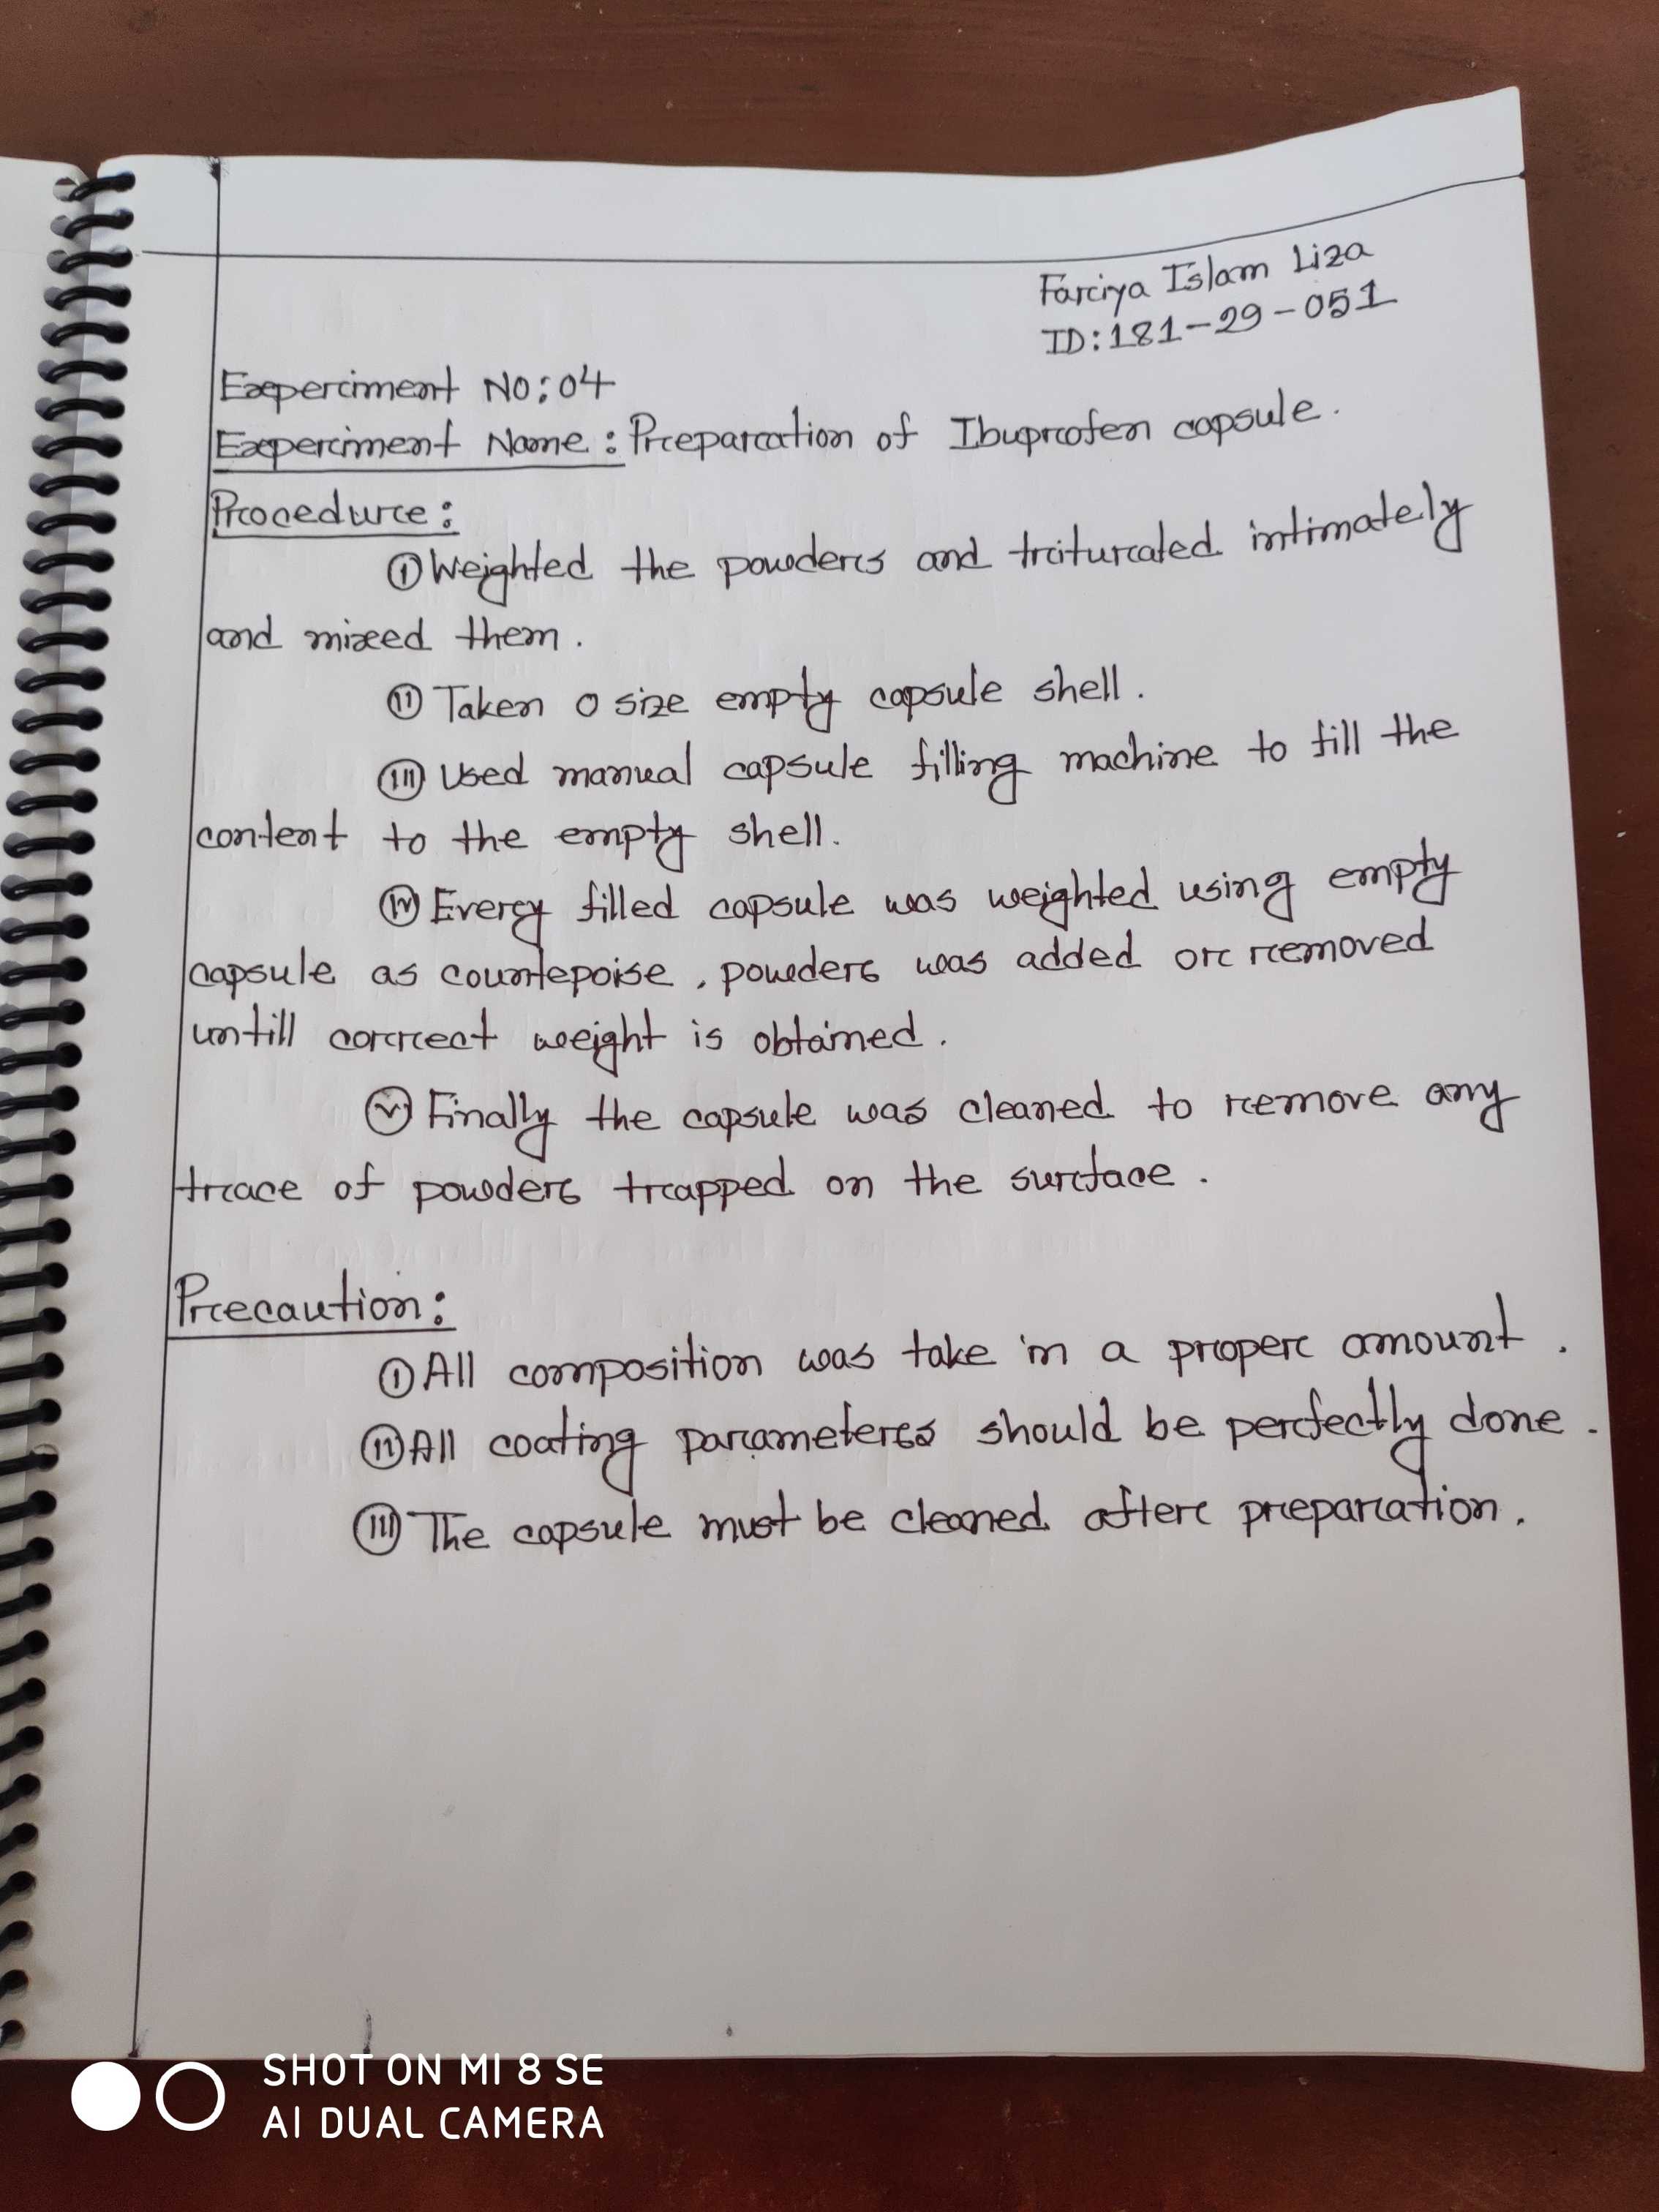 Fariya Islam Liza
ID: 181-29-051
Experiment No: 04
Experiment Name: Preparation of Ibuprofen capsule.
Procedure:
(I) Weighted the powders and triturated intimately
and mixed them.
(II) Taken 0 size empty capsule shell.
(III) Used manual capsule filling machine to fill the
content to the empty shell.
(IV) Every filled capsule was weighted using empty
capsule as countepoise, powders was added or removed
untill correct weight is obtained.
(V) Finally the capsule was cleaned to remove any
trace of powders trapped on the surface.
Precaution:
(I) All composition was take in a proper amount.
(II) All coating parameters should be perfectly done.
(III) The capsule must be cleaned after preparation.
SHOT ON MI 8 SE
AI DUAL CAMERA